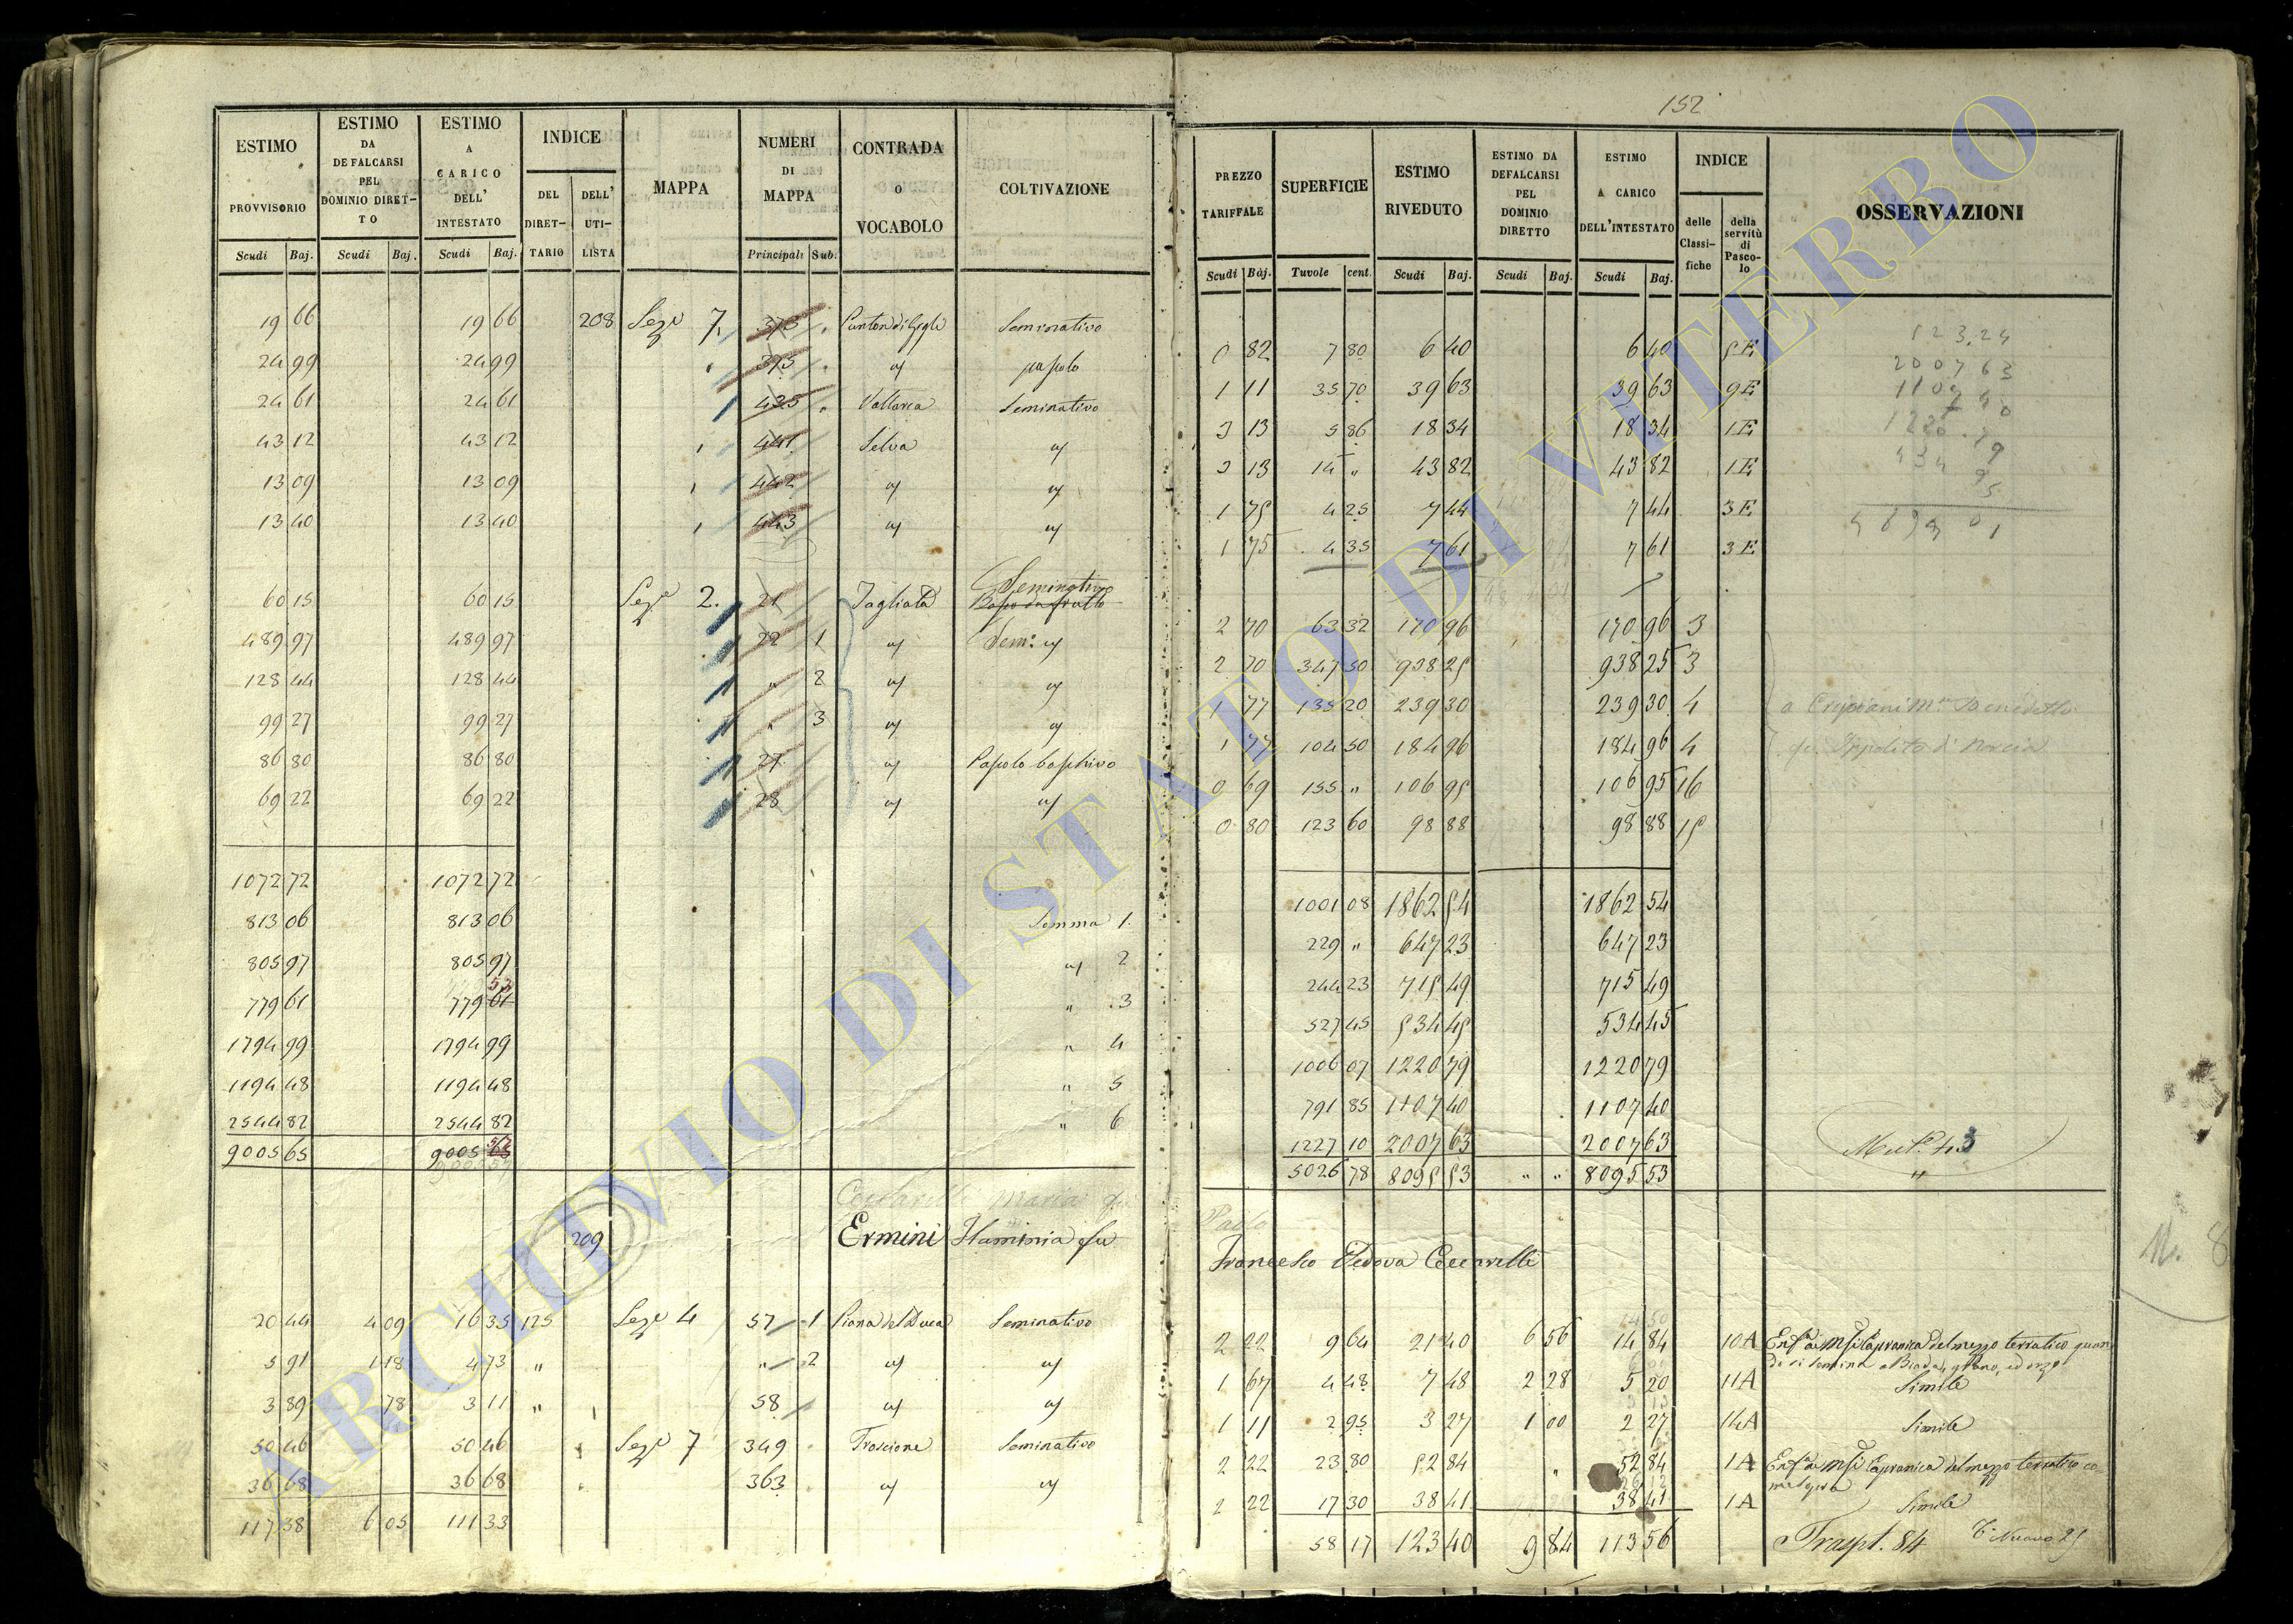 152
ESTIMO PROVVISORIO Scudi Baj.
ESTIMO DA DEFALCARSI PEL DOMINIO DIRET-TO Scudi Baj.
ESTIMO A CARICO DELL' INTESTATO Scudi Baj.
INDICE DEL DIRET-TARIO DELL' UTI-LISTA
MAPPA
NUMERI DI MAPPA Principali Sub.
CONTRADA O VOCABOLO
COLTIVAZIONE
19 66 19 66 208 Sezе 7. 373 Seminativo
24 99 24 99 375 pascolo
24 61 24 61 435 Seminativo
43 12 43 12 441 Selva
13 09 13 09 442
13 40 13 40 443
60 15 60 15 2. 21 Tagliata Seminativo
489 97 489 97 22 1 Sem:
128 44 128 44 " 2
99 27 99 27 " 3
86 80 86 80 27 Pascolo
69 22 69 22 28
1072 72 1072 72
813 06 813 06 Somma 1.
805 97 805 97 2
779 61 779 61 53 " 3
1794 99 1794 99 " 4
1194 48 1194 48 " 5
2544 82 2544 82 " 6
9005 65 9005 65
209 Ermini Flaminia fu
20 44 4 09 16 35 125 4 57 1 Piana del Duca Seminativo
5 91 1 18 4 73 " " 2
3 89 78 3 11 " 58
50 46 50 46 7 349 Troscione Seminativo
36 68 36 68 363
117 38 6 05 111 33
PREZZO TARIFFALE Scudi Baj.
SUPERFICIE Tavole cent.
ESTIMO RIVEDUTO Scudi Baj.
ESTIMO DA DEFALCARSI PEL DOMINIO DIRETTO Scudi Baj.
ESTIMO A CARICO DELL'INTESTATO Scudi Baj.
INDICE delle Classi-fiche della servitù di Pasco-lo
OSSERVAZIONI
0 82 7 80 6 40 6 40 5E
1 11 35 70 39 63 39 63 9E
3 13 5 86 18 34 18 34 1E
3 13 14 " 43 82 43 82 1E
1 75 4 25 7 44 7 44 3E
1 75 4 35 7 61 7 61 3E
2 70 63 32 170 96 170 96 3
2 70 347 50 938 25 938 25 3
1 77 135 20 239 30 239 30 4
1 77 104 50 184 96 184 96 4
0 69 155 " 106 95 106 95 16
0 80 123 60 98 88 98 88 15
1001 08 1862 54 1862 54
229 " 647 23 647 23
244 23 715 49 715 49
527 45 534 45 534 45
1006 07 1220 79 1220 79
791 85 1107 40 1107 40
1227 10 2007 63 2007 63
5026 78 8095 53 " " 8095 53
Francesco Vedova Ceccarelli
2 22 9 64 21 40 6 56 14 84 10A
1 67 4 48 7 48 2 28 5 20 11A Simile
1 11 2 95 3 27 1 00 2 27 14A Simile
2 22 23 80 52 84 " 52 84 1A
2 22 17 30 38 41 38 41 1A Simile
58 17 123 40 9 84 113 56 Traspt. 84
ARCHIVIO DI STATO DI VITERBO